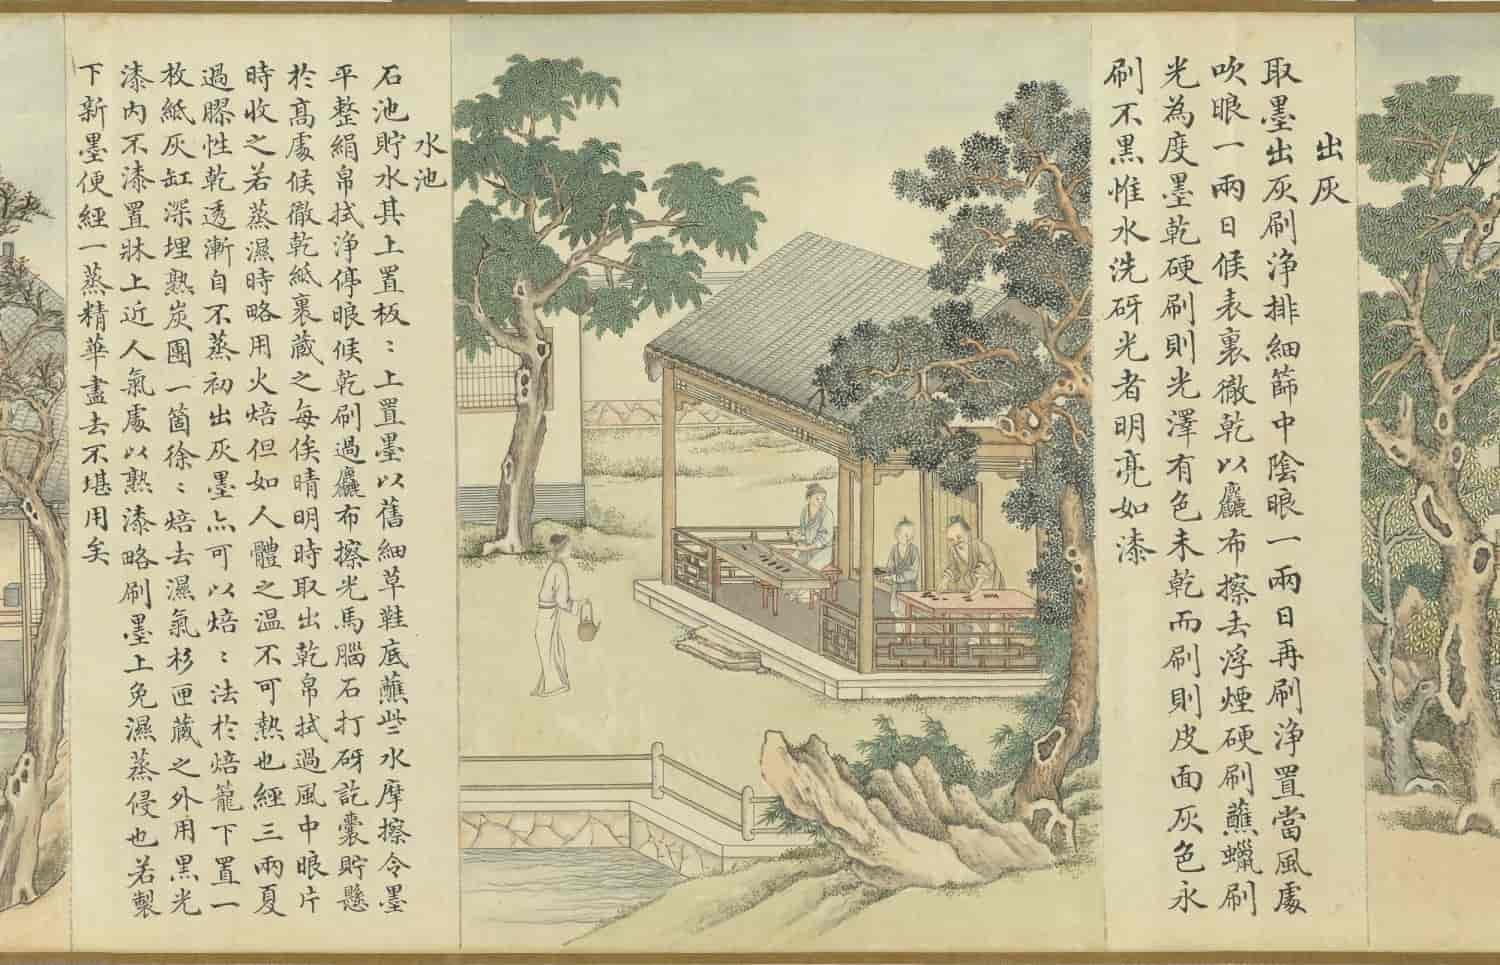 出灰
取墨出灰刷淨排細篩中陰眼一兩日再刷淨置當風處
吹眼一兩日候表裏徹乾以麤布擦去浮煙硬刷蘸蠟刷
光為度墨乾硬刷則光澤有色未乾而刷則皮面灰色永
刷不黑惟水洗砑光者明亮如漆
水池
石池貯水其上置板〻上置墨以舊細草鞋底蘸些水摩擦令墨
平整絹帛拭淨停眼候乾刷過麤布擦光馬腦石打砑訖囊貯懸
於高處候徹乾紙裹藏之每俟晴明時取出乾帛拭過風中眼片
時收之若蒸濕時略用火焙但如人體之溫不可熱也經三兩夏
過膠性乾透漸自不蒸初出灰墨亦可以焙〻法於焙籠下置一
枚紙灰缸深埋熟炭團一箇徐〻焙去濕氣杉匣藏之外用黑光
漆內不漆置牀上近人氣處以熟漆略刷墨上免濕蒸侵也若製
下新墨便經一蒸精華盡去不堪用矣